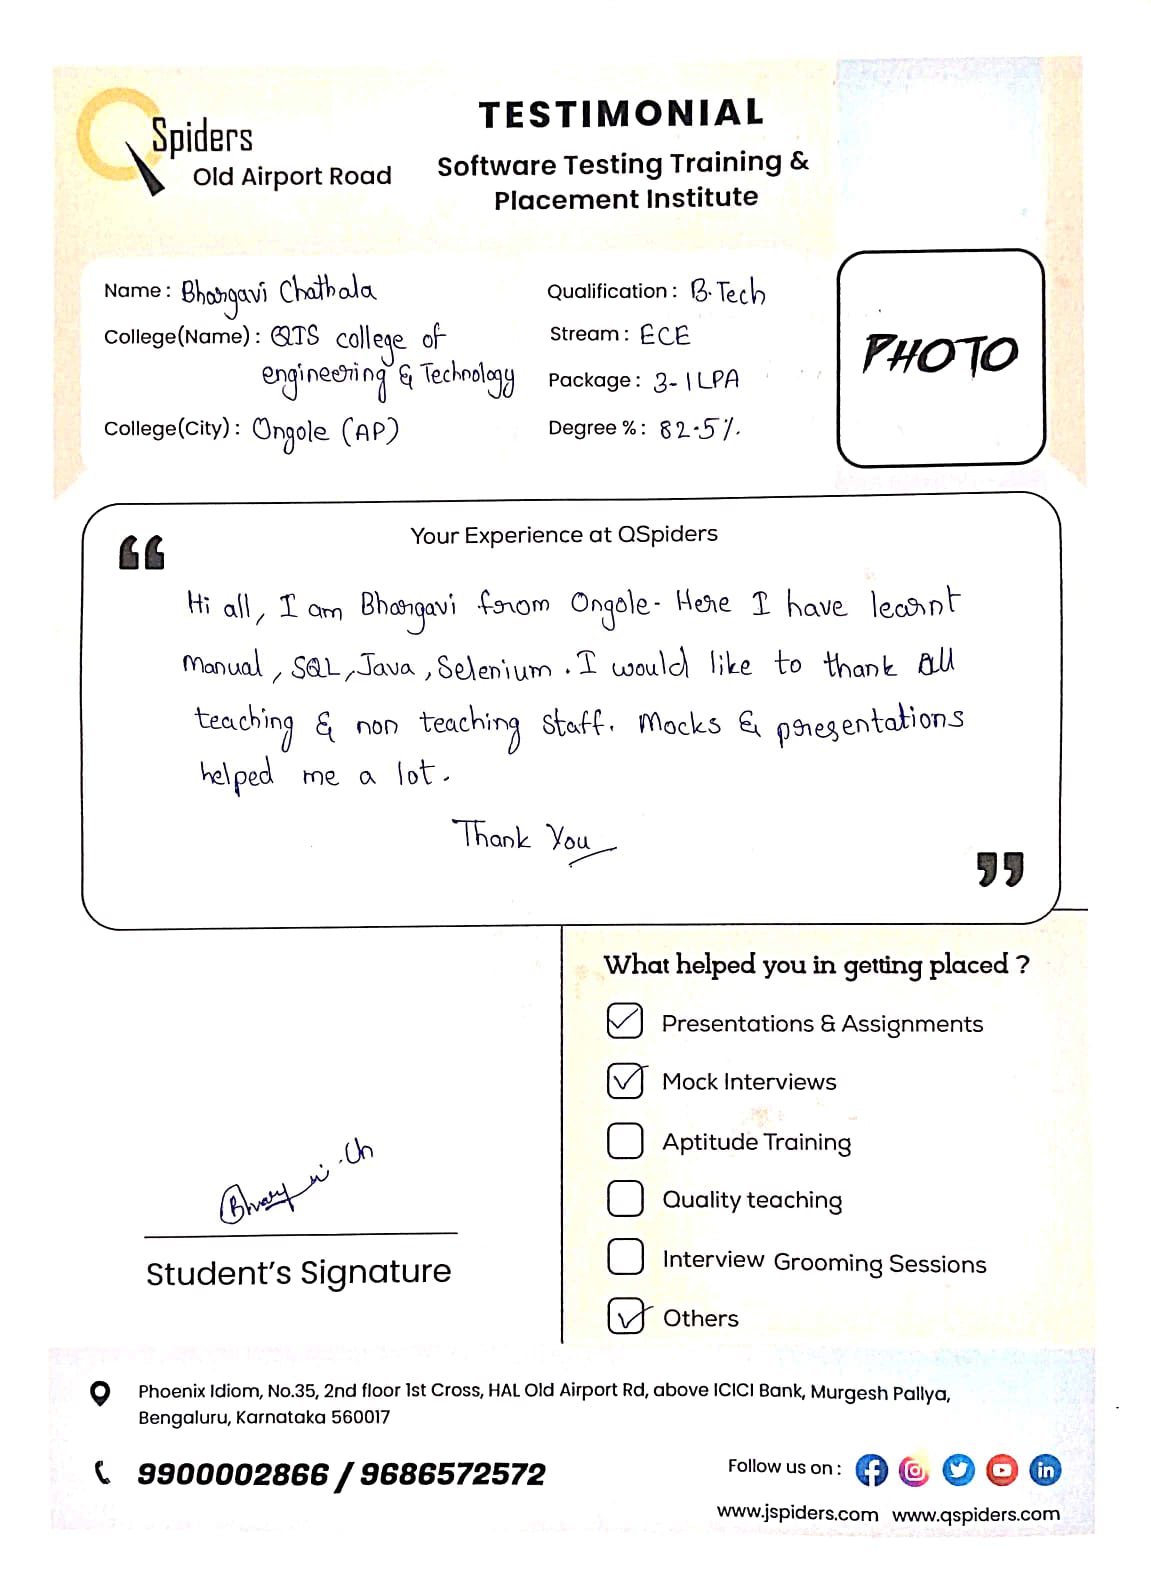 Spiders
Old Airport Road
TESTIMONIAL
Software Testing Training &
Placement Institute
Name : Bhargavi Chathala
College(Name) : QIS college of
engineering & Technology
College(City) : Ongole (AP)
Qualification : B.Tech
Stream : ECE
Package : 3-1LPA
Degree % : 82.5%.
PHOTO
Your Experience at QSpiders
Hi all, I am Bhargavi from Ongole- Here I have learnt
Manual, SQL, Java, Selenium. I would like to thank All
teaching & non teaching staff. Mocks & presentations
helped me a lot.
Thank You
What helped you in getting placed ?
Presentations & Assignments
Mock Interviews
Aptitude Training
Quality teaching
Interview Grooming Sessions
Others
Bhargavi.Ch
Student's Signature
Phoenix Idiom, No.35, 2nd floor 1st Cross, HAL Old Airport Rd, above ICICI Bank, Murgesh Pallya,
Bengaluru, Karnataka 560017
9900002866 / 9686572572
Follow us on :
www.jspiders.com www.qspiders.com